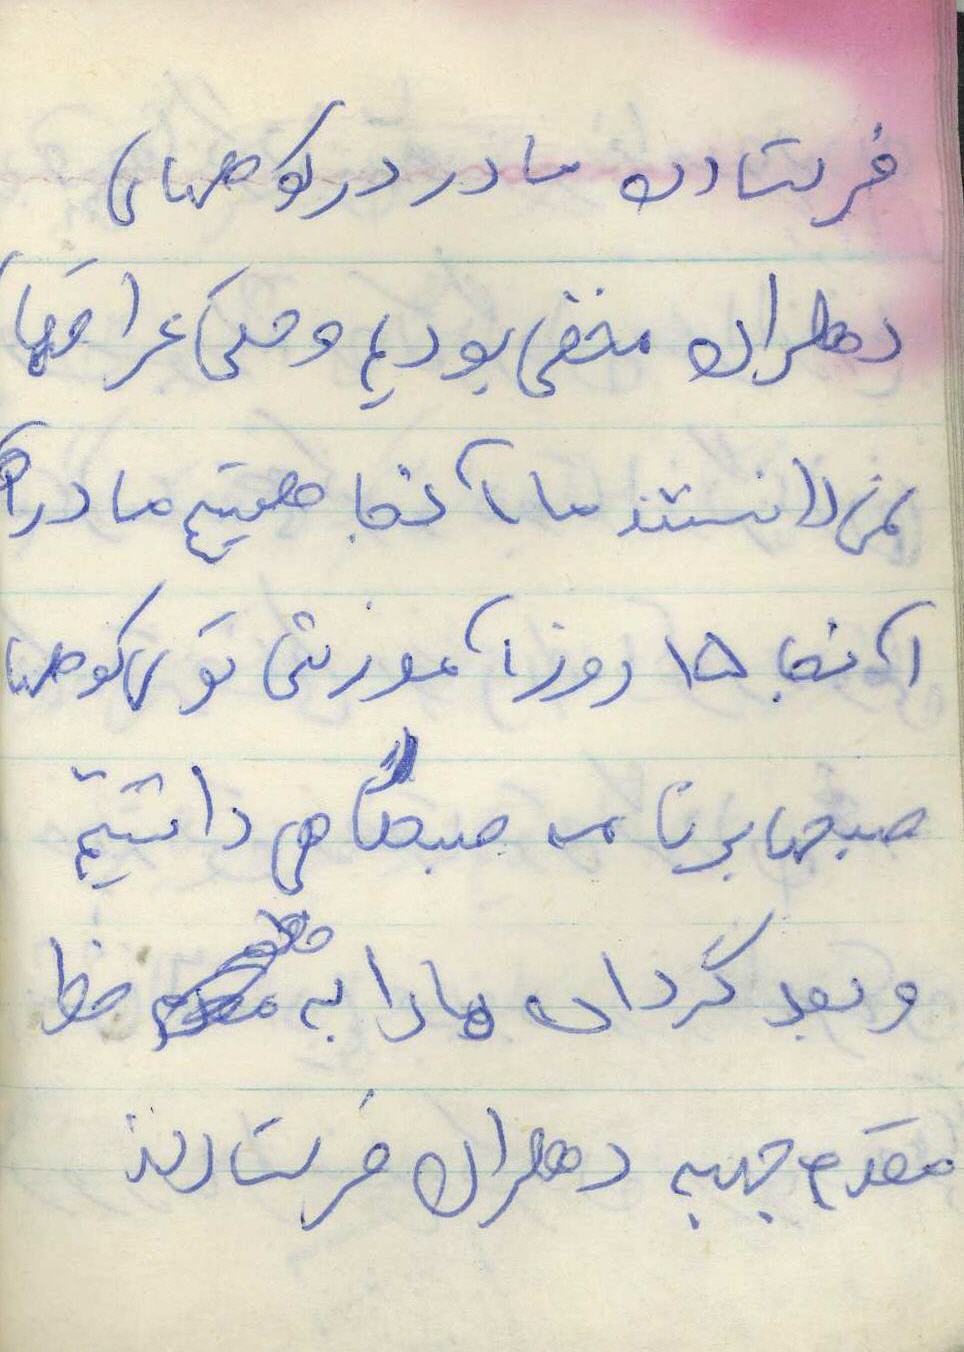 فرستادن ما در در کوههای
دهلران مخفی بودیم و حتی عراقیها
نمی‌دانستند ما آنجا هستیم ما در
آنجا ۱۵ روز آموزش توی کوهها
صبحها برنامه صبحگاهی داشتیم
و بعد گردان مارا به خط
مقدم جبهه دهلران فرستادند